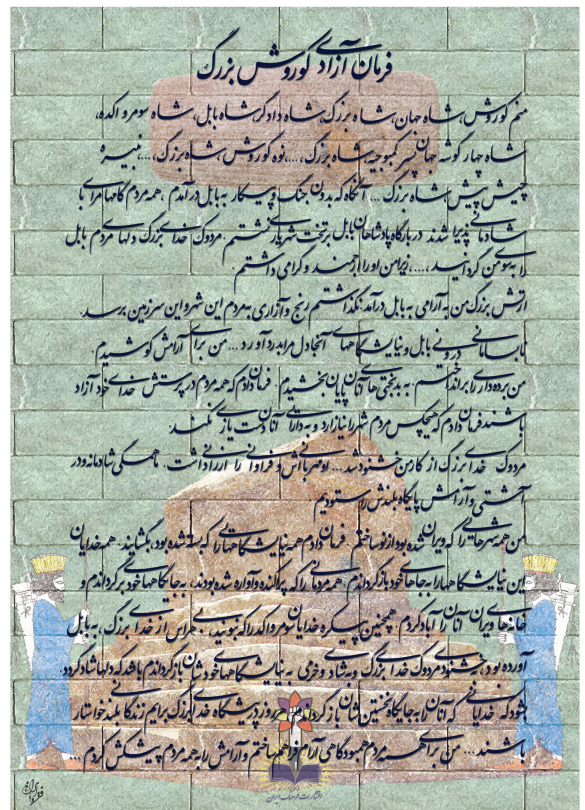 فرمان آزادی کوروش بزرگ
منم کوروش، شاه جهان، شاه بزرگ، شاه دادگر، شاه بابل، شاه سومر و اکد،
شاه چهار گوشه جهان، پسر کمبوجیه، شاه بزرگ، ....، نوه کوروش، شاه بزرگ، ....، نبیره
چیش پیش، شاه بزرگ ... آنگاه که بدون جنگ و پیکار به بابل در آمدم ، همه مردم گامهای مرا با
شادمانی پذیرا شدند در بارگاه پادشاهان بابل بر تخت شهریاری نشستم مردوک خدای بزرگ دلهای مردم بابل
را به سوی من گردانید ،....، زیرا من او را ارجمند و گرامی داشتم .
ارتش بزرگ من به آرامی به بابل در آمد، نگذاشتم رنج و آزاری به مردم این شهر و این سرزمین برسد .
نابسامانی درونی بابل و نیایشگاههای آنجا دل مرا به درد آورد ... من برای آرامش کوشیدم .
من برده داری را بر انداختم . به بدبختی های آنان پایان بخشیدم . فرمان دادم که همه مردم در پرستش خدای خود آزاد
باشند فرمان دادم که هیچکس مردم شهر را نیازارد و به دارایی آنان دست یازی نکند .
مردوک خدای بزرگ از کار من خشنود شد .... او مهربانی اش و فراوانی را ارزانی داشت . ما همگی شادمانه و در
آشتی و آرامش پایگاه بلندش را ستودیم
من همه شهرهایی را که ویران شده بود از نو ساختم . فرمان دادم همه نیایشگاههایی را که بسته شده بود ، بگشایند . همه خدایان
این نیایشگاهها را به جاهای خود بازگرداندم . همه مردمانی را که پراکنده و آواره شده بودند ، به جایگاههای خود برگرداندم و
خانه های ویران آنان را آباد کردم همچنین پیکره خدایان سومر و اکد را که نبونید ، بی هراس از خدای بزرگ ، به بابل
آورده بود ، به خشنودی مردوک خدای بزرگ و به شادی و خرمی به نیایشگاههای خودشان بازگرداندم باشد که دلها شاد گردد .
بشود که خدایانی که آنان را به جایگاه نخستین شان بازگرداندم هر روز در پیشگاه خدای بزرگ برایم زندگانی بلند خواستار
باشند .... من برای همه مردم همبودگاهی آرام فراهم ساختم و آرامش را به همه مردم پیشکش کردم ...
انتشارات فرهنگ ایران